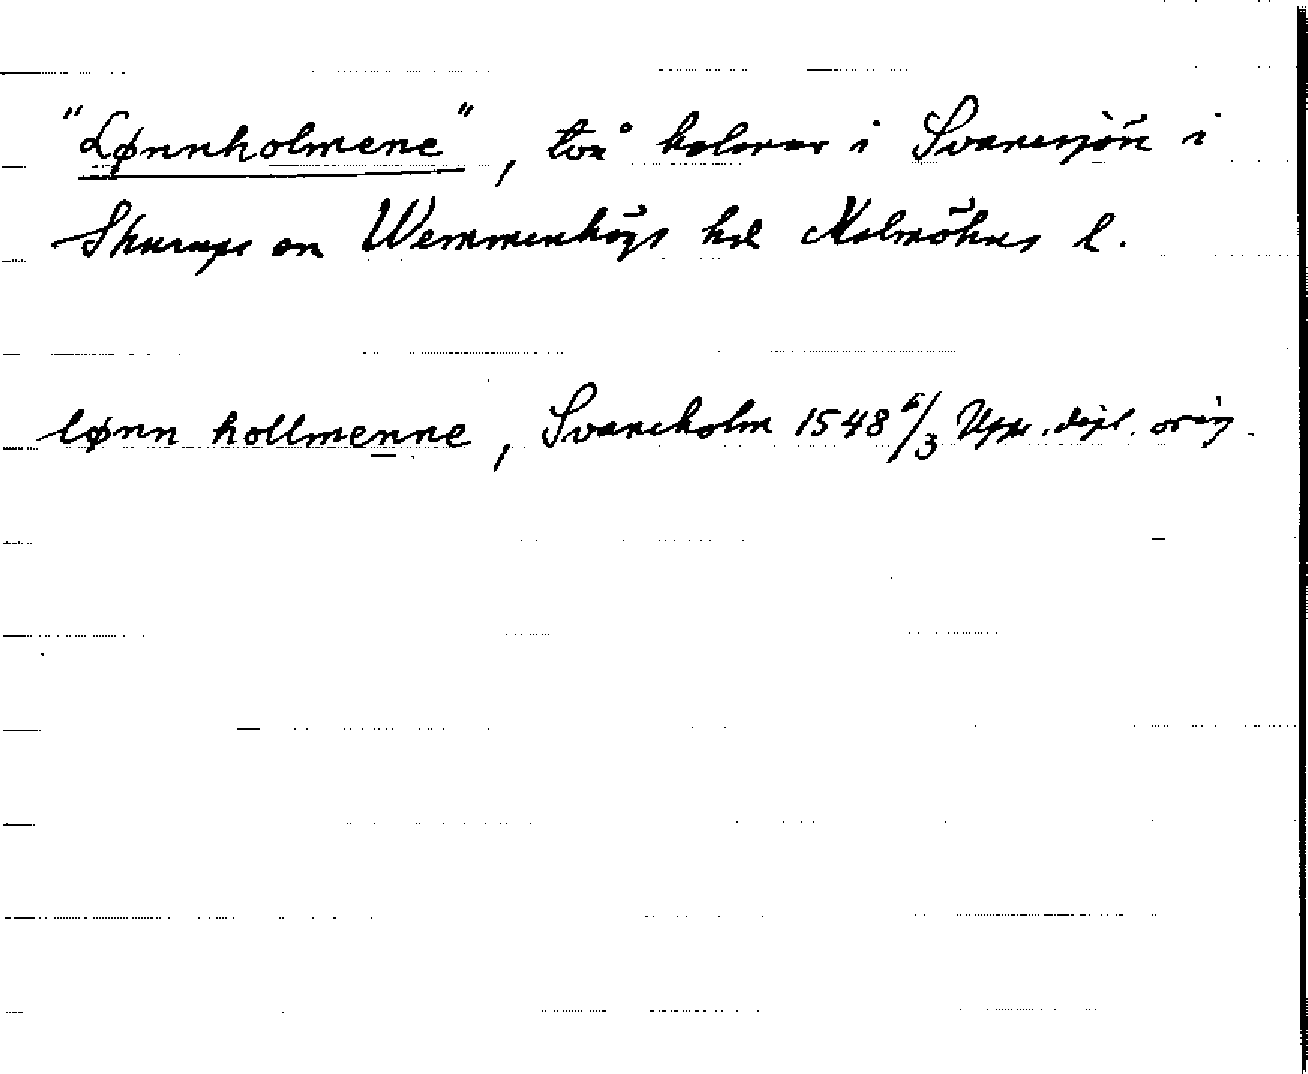 "Lønnholmene", två holmar i Svanesjön i
Skurups sn Vemmenhögs hd Malmöhus l.
lønn hollmenne, Svaneholm 1548 6/3 Upps. dipl. orig.